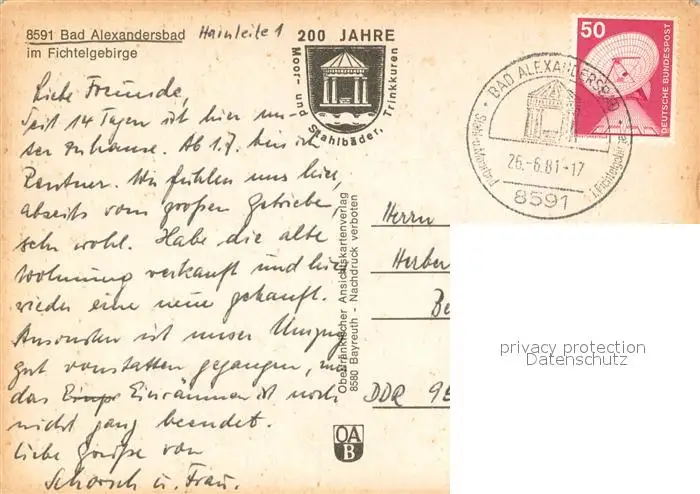 8591 Bad Alexandersbad Hainleite 1
im Fichtelgebirge
200 JAHRE
Moor- und Stahlbäder, Trinkkuren
Liebe Freunde,
seit 14 Tagen ist hier un-
ser Zuhause. Ab 1.7. bin ich
Rentner. Wir fühlen uns hier,
abseits vom großen Getriebe,
sehr wohl. Habe die alte
Wohnung verkauft und hier
wieder eine neue gekauft.
Ansonsten ist unser Umzug
gut vonstatten gegangen, nur
das Einräumen ist noch
nicht ganz beendet.
Liebe Grüße von
Schorsch u. Frau.
Oberfränkischer Ansichtskartenverlag
8580 Bayreuth - Nachdruck verboten
OA
B
50
DEUTSCHE BUNDESPOST
BAD ALEXANDERSBAD
26.-6.81-17
8591
Herrn
Herber
Be
DDR 95
privacy protection
Datenschutz